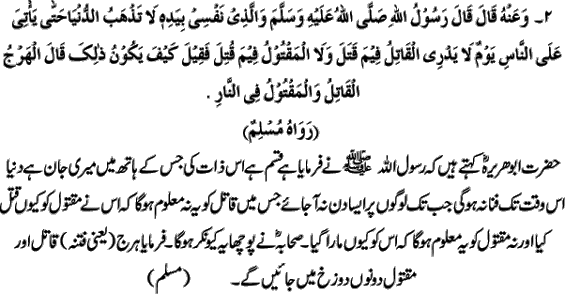 ۲۔ وَعَنْهُ قَالَ قَالَ رَسُوْلُ اللهِ صَلَّى اللهُ عَلَيْهِ وَسَلَّمَ وَالَّذِىْ نَفْسِىْ بِيَدِهٖ لَا تَذْهَبُ الدُّنْيَا حَتّٰى يَأْتِىَ
عَلَى النَّاسِ يَوْمٌ لَا يَدْرِى الْقَاتِلُ فِيْمَ قَتَلَ وَلَا الْمَقْتُوْلُ فِيْمَ قُتِلَ فَقِيْلَ كَيْفَ يَكُوْنُ ذٰلِكَ قَالَ الْهَرْجُ
الْقَاتِلُ وَالْمَقْتُوْلُ فِى النَّارِ .
(رَوَاهُ مُسْلِمٌ)
حضرت ابوھریرہؓ کہتے ہیں کہ رسول اللہ ﷺ نے فرمایا ہے قسم ہے اس ذات کی جس کے ہاتھ میں میری جان ہے دنیا
اس وقت تک فنا نہ ہوگی جب تک لوگوں پر ایسا دن نہ آ جائے جس میں قاتل کو یہ نہ معلوم ہوگا کہ اس نے مقتول کو کیوں قتل
کیا اور نہ مقتول کو یہ معلوم ہوگا کہ اس کو کیوں مارا گیا۔ صحابہؓ نے پوچھا یہ کیونکر ہوگا۔ فرمایا ہرج (یعنی فتنہ) قاتل اور
مقتول دونوں دوزخ میں جائیں گے۔ (مسلم)